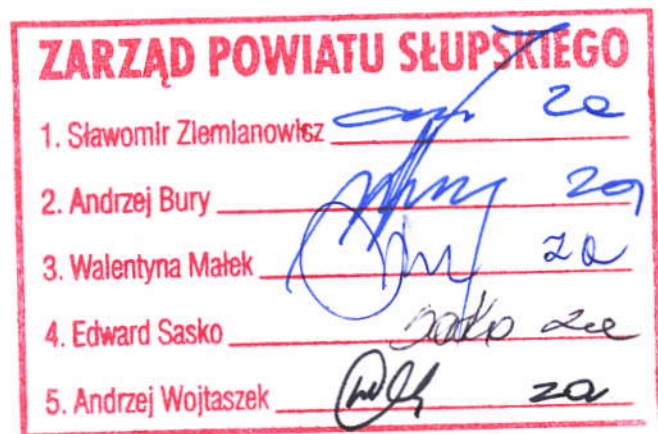 ZARZĄD POWIATU SŁUPSKIEGO
1. Sławomir Ziemianowicz za
2. Andrzej Bury za
3. Walentyna Małek za
4. Edward Sasko Sasko za
5. Andrzej Wojtaszek za